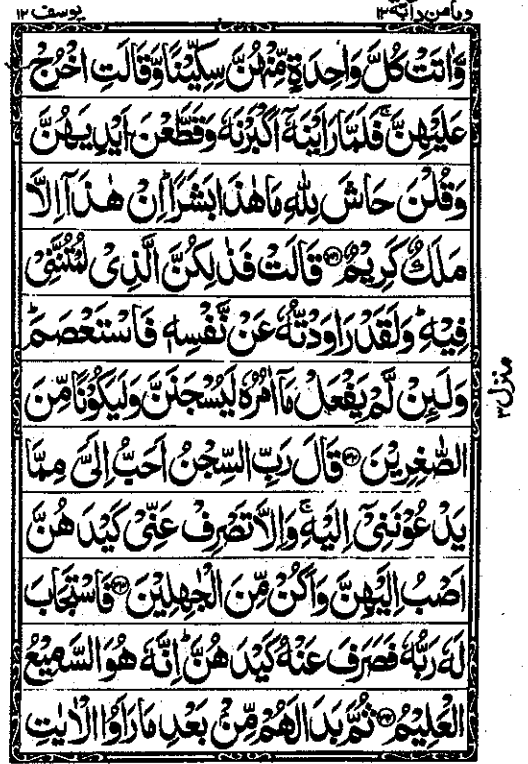 وما من دآبة ١٢
يوسف ١٢
وَّاٰتَتْ كُلَّ وَاحِدَةٍ مِّنْهُنَّ سِكِّيْنًا وَّقَالَتِ اخْرُجْ
عَلَيْهِنَّ ۚ فَلَمَّا رَاَيْنَهٗۤ اَكْبَرْنَهٗ وَقَطَّعْنَ اَيْدِيَهُنَّ
وَقُلْنَ حَاشَ لِلّٰهِ مَا هٰذَا بَشَرًا ؕ اِنْ هٰذَاۤ اِلَّا
مَلَكٌ كَرِيْمٌ ﴿۳۱﴾ قَالَتْ فَذٰلِكُنَّ الَّذِیْ لُمْتُنَّنِیْ
فِيْهِ ؕ وَلَقَدْ رَاوَدْتُّهٗ عَنْ نَّفْسِهٖ فَاسْتَعْصَمَ ؕ
وَلَىِٕنْ لَّمْ يَفْعَلْ مَاۤ اٰمُرُهٗ لَيُسْجَنَنَّ وَلَيَكُوْنًا مِّنَ
الصّٰغِرِيْنَ ﴿۳۲﴾ قَالَ رَبِّ السِّجْنُ اَحَبُّ اِلَیَّ مِمَّا
يَدْعُوْنَنِیْۤ اِلَيْهِ ۚ وَاِلَّا تَصْرِفْ عَنِّیْ كَيْدَهُنَّ
اَصْبُ اِلَيْهِنَّ وَاَكُنْ مِّنَ الْجٰهِلِيْنَ ﴿۳۳﴾ فَاسْتَجَابَ
لَهٗ رَبُّهٗ فَصَرَفَ عَنْهُ كَيْدَهُنَّ ؕ اِنَّهٗ هُوَ السَّمِيْعُ
الْعَلِيْمُ ﴿۳۴﴾ ثُمَّ بَدَا لَهُمْ مِّنْۢ بَعْدِ مَا رَاَوُا الْاٰيٰتِ
منزل ۳